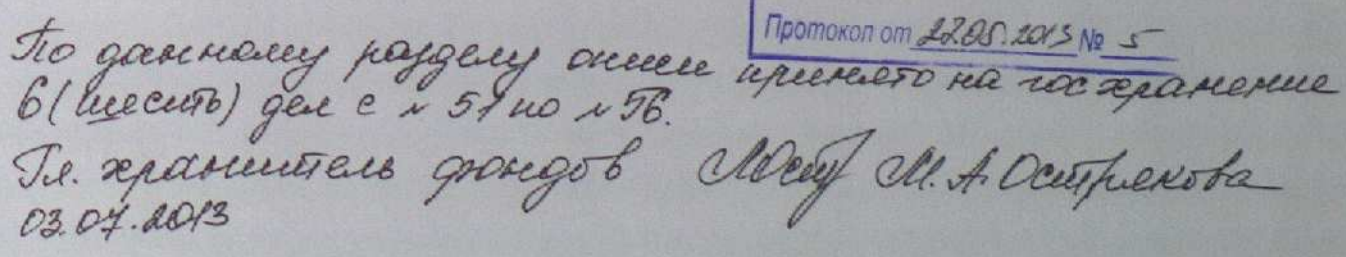 Протокол от 22.05.2013 № 5
По данному разделу описи принято на госхранение
6 (шесть) дел с № 51 по № 56.
Гл. хранитель фондов М.А. Острякова
03.07.2013